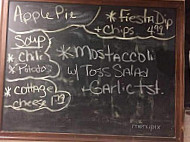 Apple Pie
*Fiesta Dip
+Chips 4.99
Soup
*Chili
*Potato
*Mostaccoli
w/ Toss Salad
+Garlic Tst.
*Cottage
cheese 1.79
menupix